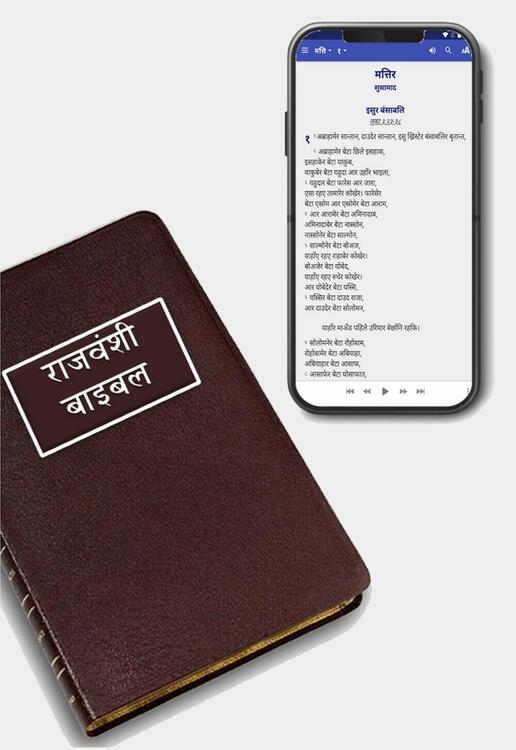 राजवंशी
बाइबल
मत्ति
१
मत्तिर
सुसामाद
इसुर बंसाबलि
१ १अब्राहामेर सान्तान, दाउदेर सान्तान, इसु ख्रिस्टेर बंसाबलिर बृतान्त,
२ अब्राहामेर बेटा छिले इसहाक,
इसहाकेर बेटा याकुब,
याकुबेर बेटा यहुदा आर उहाँर भाइला,
३ यहुदार बेटा फारेस आर जारा,
एला रहए तामारेर कोखेर। फारेसेर
बेटा एसोम आर एसोमेर बेटा आराम,
४ आर आरामेर बेटा अमिनादाब,
अमिनादाबेर बेटा नास्सोन,
नास्सोनेर बेटा साल्मोन,
५ साल्मोनेर बेटा बोअज,
याहाँए रहए राहाबेर कोखेर।
बोअजेर बेटा योबेद,
याहाँए रहए रुथेर कोखेर।
आर योबेदेर बेटा यस्सि,
६ यस्सिर बेटा दाउद राजा,
आर दाउदेर बेटा सोलोमन,
याहाँर माअँड पहिले उरियार बेछानि रहकि।
७ सोलोमनेर बेटा रोहोबाम,
रोहोबामेर बेटा अबियाहा,
अबियाहार बेटा आसाफ,
८ आसाफेर बेटा योसाफात,